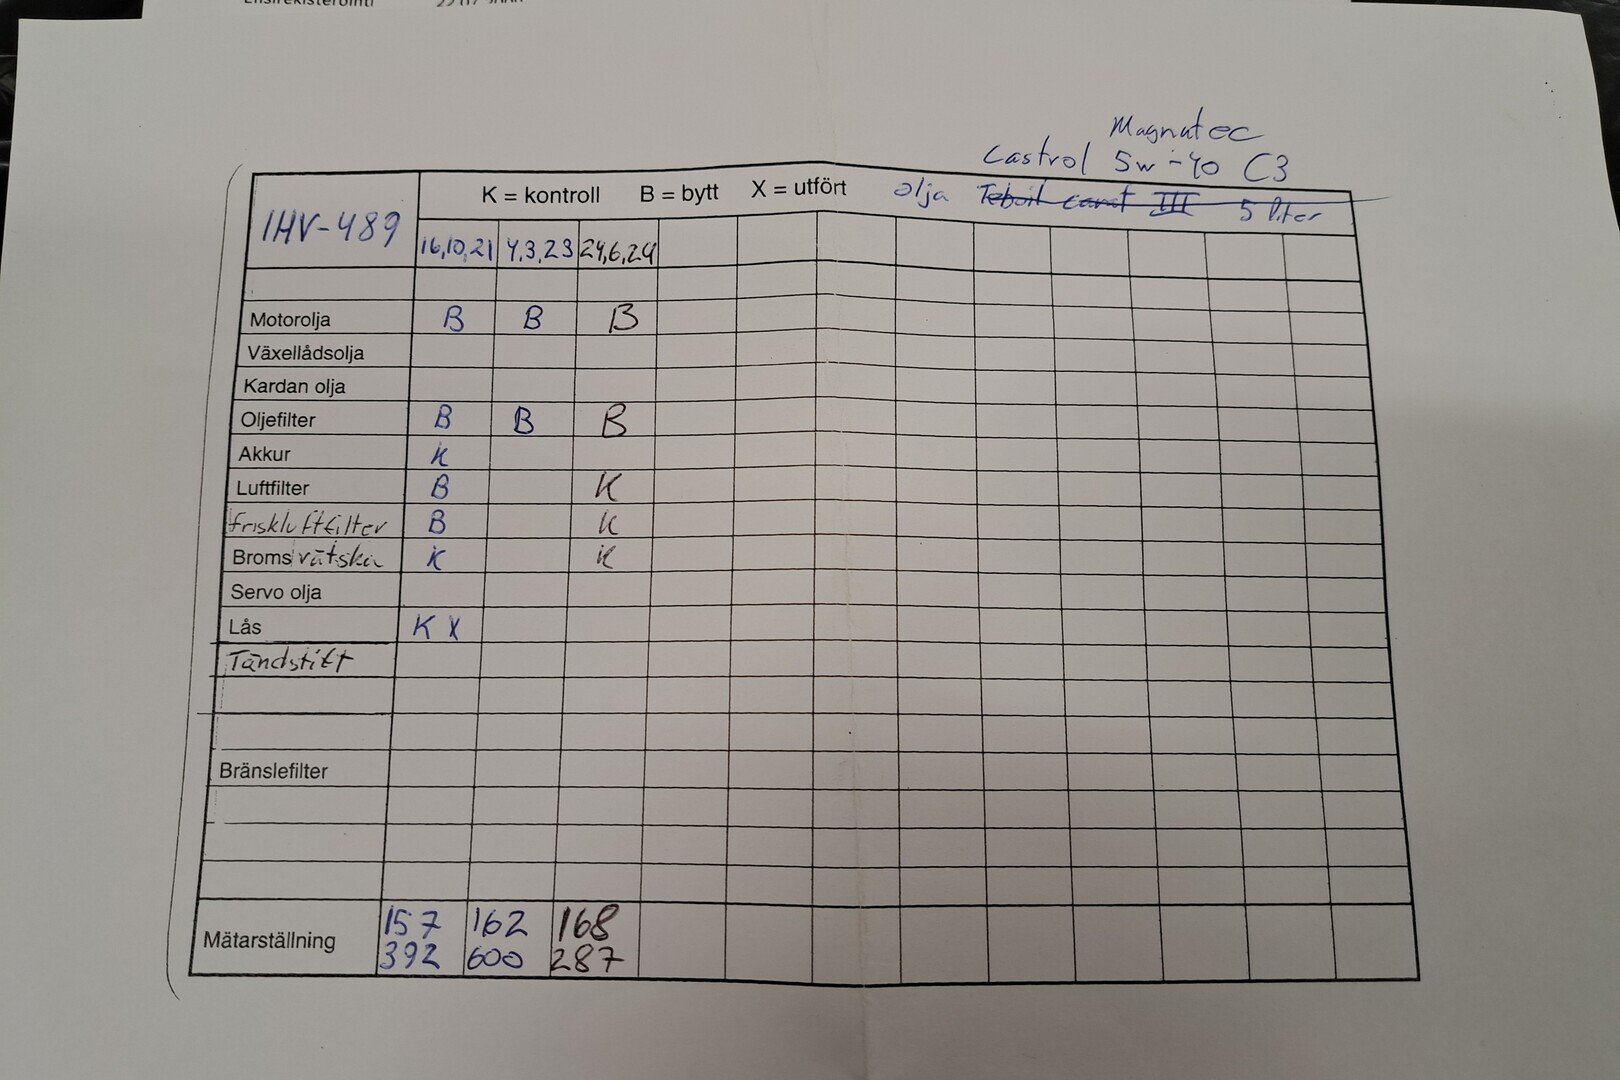 Ensirekisteröinti
Magnatec
Castrol 5w-40 C3
K = kontroll B = bytt X = utfört olja Teboil carat III 5 liter
IHV-489
16,10,21 4,3,23 24,6,24
Motorolja B B B
Växellådsolja
Kardan olja
Oljefilter B B B
Akkur K
Luftfilter B K
friskluftfilter B K
Bromsvätska K K
Servo olja
Lås K X
Tändstift
Bränslefilter
Mätarställning 157 162 168
392 600 287